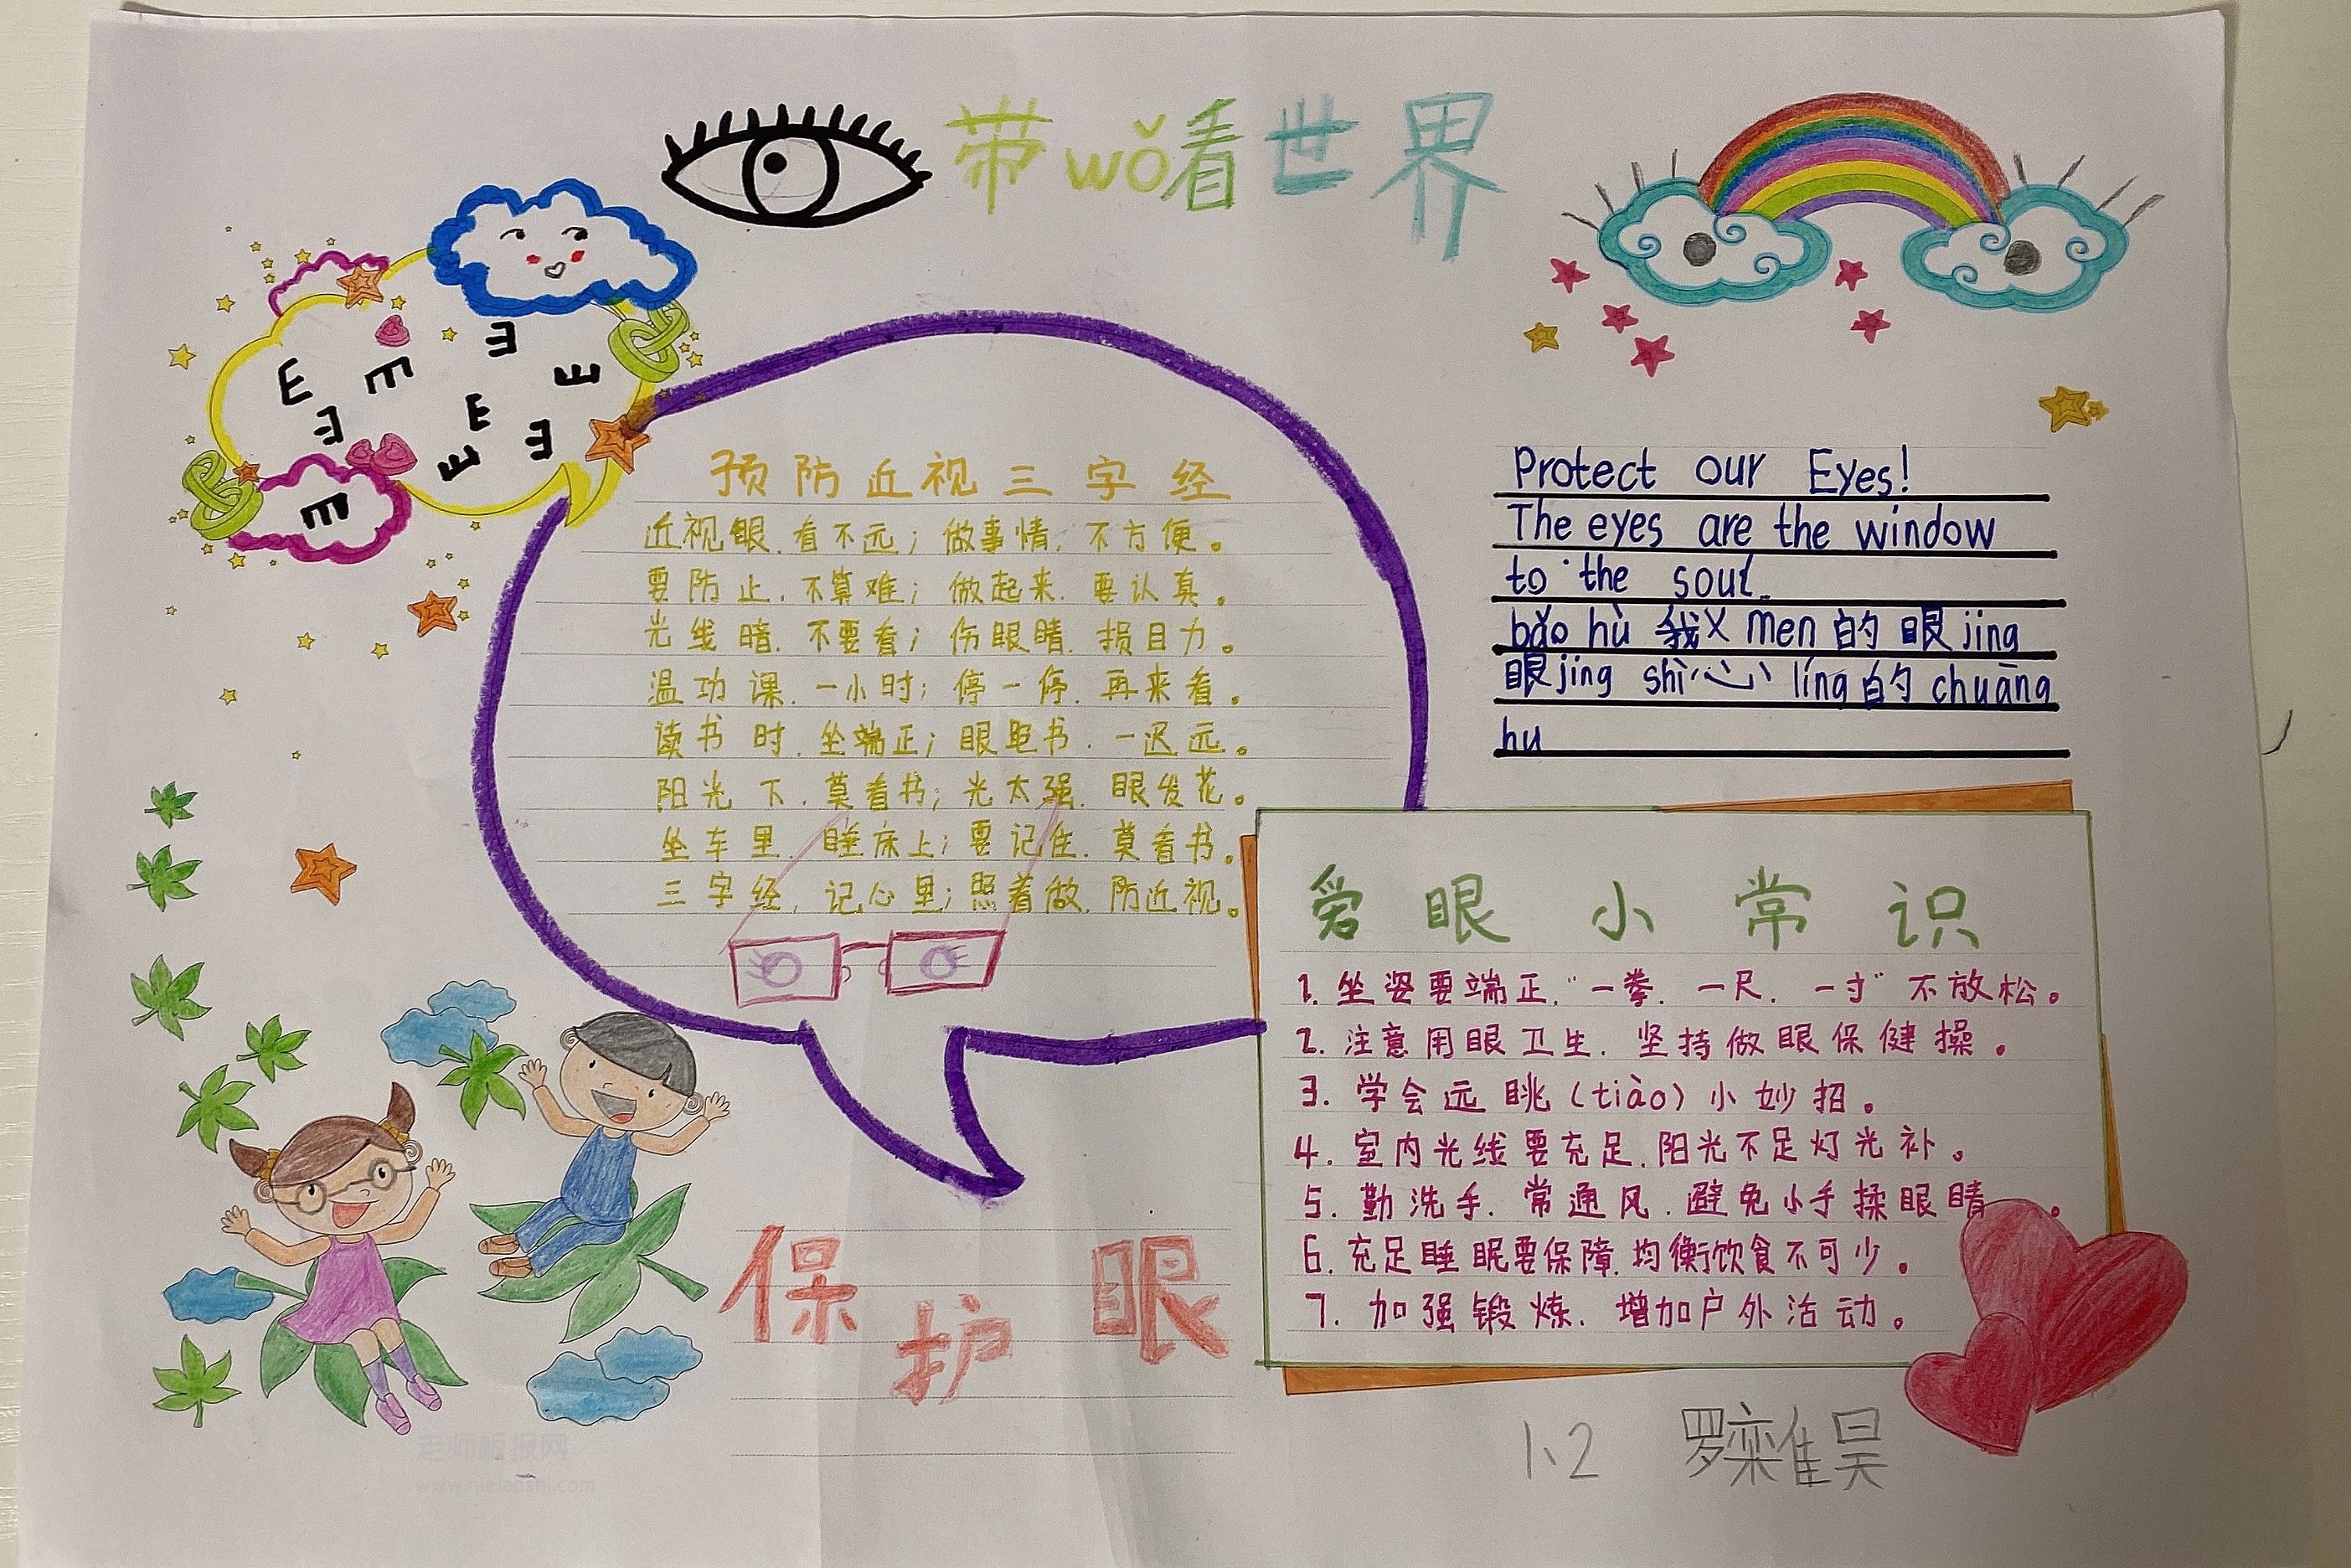 带wǒ看世界
E E E E E E E E E
预防近视三字经
近视眼,看不远;做事情,不方便。
要防止,不算难;做起来,要认真。
光线暗,不要看;伤眼睛,损目力。
温功课,一小时;停一停,再来看。
读书时,坐端正;眼距书,一尺远。
阳光下,莫看书;光太强,眼发花。
坐车里,睡床上;要记住,莫看书。
三字经,记心里;照着做,防近视。
Protect our Eyes!
The eyes are the window
to the soul.
bǎo hù 我 men 的 眼 jing
眼 jing shì 心 líng 的 chuāng
hu
爱眼小常识
1. 坐姿要端正,“一拳,一尺,一寸”不放松。
2. 注意用眼卫生,坚持做眼保健操。
3. 学会远眺(tiào)小妙招。
4. 室内光线要充足,阳光不足灯光补。
5. 勤洗手,常通风,避免小手揉眼睛。
6. 充足睡眠要保障,均衡饮食不可少。
7. 加强锻炼,增加户外活动。
保护眼
1、2 罗栾隹昊
老师板报网